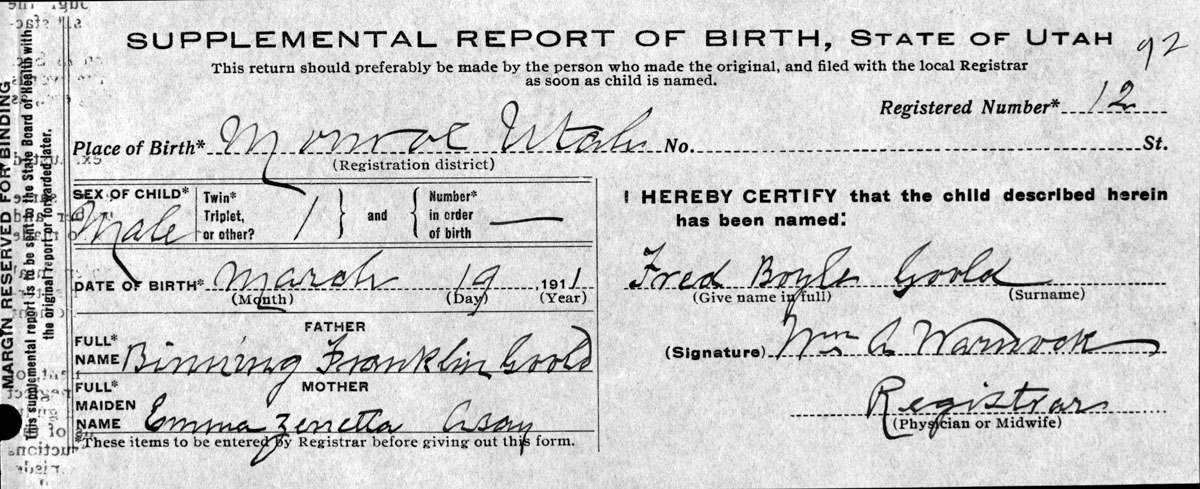 SUPPLEMENTAL REPORT OF BIRTH, STATE OF UTAH
92
This return should preferably be made by the person who made the original, and filed with the local Registrar
as soon as child is named.
Registered Number* 12
Place of Birth* Monroe Utah No. St.
(Registration district)
SEX OF CHILD*
Male
Twin*
Triplet,
or other?
1 } and {
Number*
in order
of birth
—
DATE OF BIRTH* March 19 1911
(Month) (Day) (Year)
FATHER
FULL*
NAME Binning Franklin Goold
MOTHER
FULL*
MAIDEN
NAME Emma Zenetta Asay
*These items to be entered by Registrar before giving out this form.
I HEREBY CERTIFY that the child described herein
has been named:
Fred Boyle Goold
(Give name in full) (Surname)
(Signature) Wm A Warnock
Registrar
(Physician or Midwife)
MARGIN RESERVED FOR BINDING
This supplemental report is to be sent to the State Board of Health with
the original report or forwarded later.